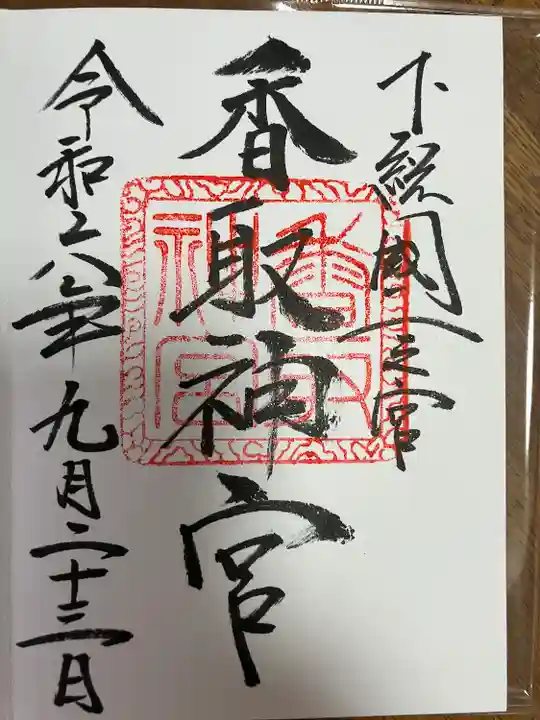 下総国一之宮
香取神宮
香取神宮
令和六年九月二十三日